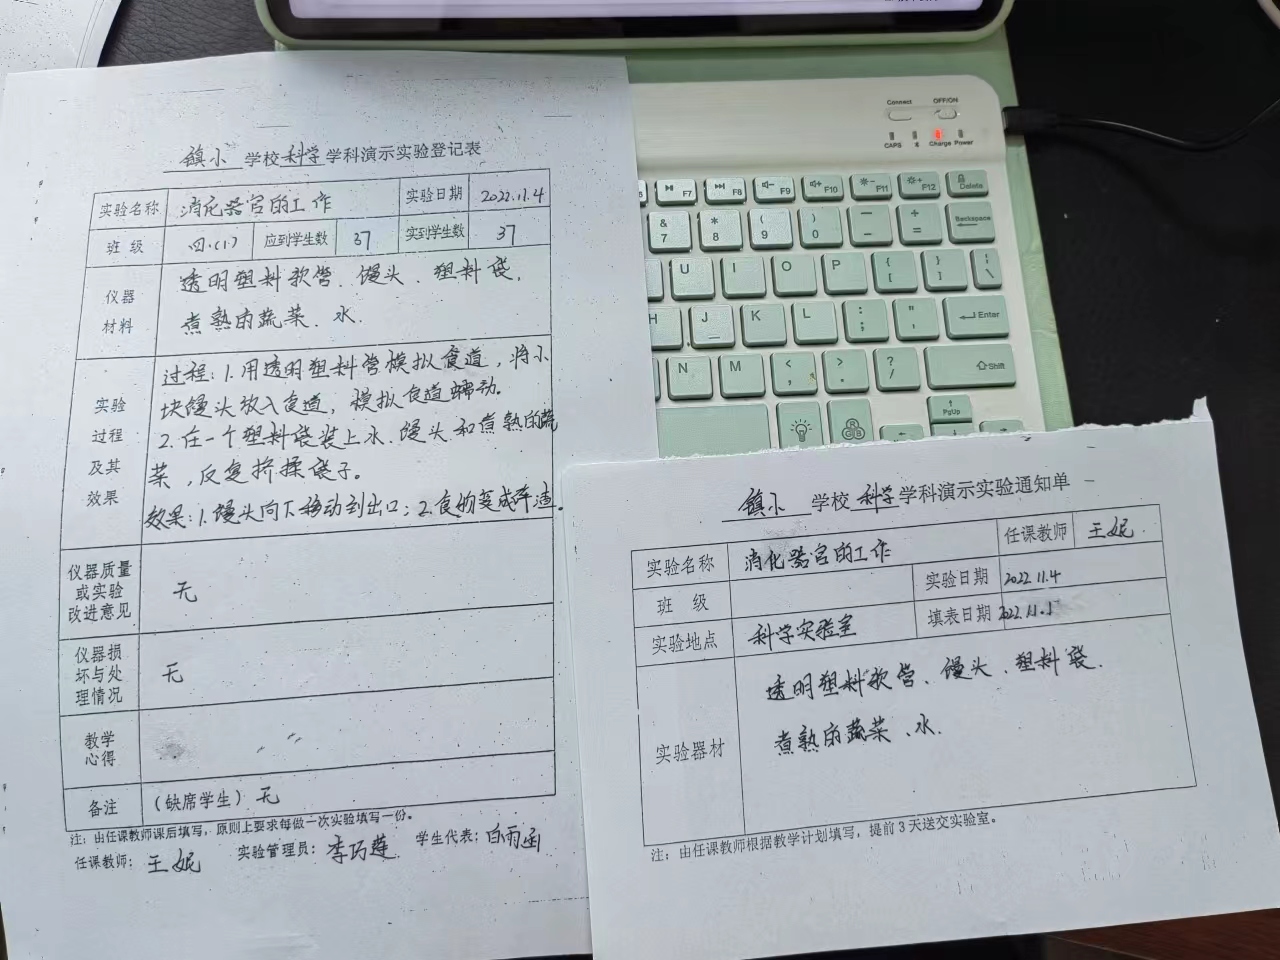 镇小 学校 科学 学科演示实验登记表
实验名称 消化器官的工作 实验日期 2022.11.4
班 级 四.(1) 应到学生数 37 实到学生数 37
仪器
材料
透明塑料软管、馒头、塑料袋,
煮熟的蔬菜、水.
实验
过程
及其
效果
过程:1.用透明塑料管模拟食道,将小
块馒头放入食道,模拟食道蠕动.
2.在一个塑料袋装上水、馒头和煮熟的蔬
菜,反复挤揉袋子。
效果:1.馒头向下移动到出口;2.食物变成碎渣。
仪器质量
或实验
改进意见
无
仪器损
坏与处
理情况
无
教学
心得
备注 (缺席学生) 无
注:由任课教师课后填写,原则上要求每做一次实验填写一份。
任课教师: 王妮 实验管理员: 李巧莲 学生代表: 白雨函
镇小 学校 科学 学科演示实验通知单
实验名称 消化器官的工作 任课教师 王妮.
班 级 实验日期 2022.11.4
实验地点 科学实验室 填表日期 2022.11.1
实验器材
透明塑料软管、馒头、塑料袋.
煮熟的蔬菜、水.
注:由任课教师根据教学计划填写,提前3天送交实验室。
Connect OFF/ON
CAPS Charge Power
F7 F8 F9 F10 F11 F12 Delete
& 7 * 8 ( 9 ) 0 — - + = Backspace
U I O P { [ } ] | \
H J K L : ; " , Enter
N M < , > . ? / Shift
PgUp